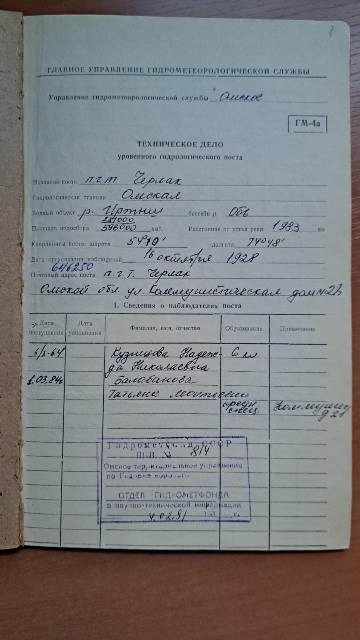 ГЛАВНОЕ УПРАВЛЕНИЕ ГИДРОМЕТЕОРОЛОГИЧЕСКОЙ СЛУЖБЫ
Управление гидрометеорологической службы Омское
ГМ-4а
ТЕХНИЧЕСКОЕ ДЕЛО
уровенного гидрологического поста
Название поста п.г.т Черлак
Гидрологическая станция Омская
Водный объект р. Иртыш бассейн р. Обь
Площадь водосбора км² Расстояние от устья реки 1993 км
Координаты поста: широта 54°10' долгота 74°48'
Дата организации наблюдений 16 октября 1928
646250
Почтовый адрес поста п.г.т. Черлак
Омской обл. ул Коммунистическая дом №
1. Сведения о наблюдателях поста
Дата поступления Дата увольнения Фамилия, имя, отчество Образование Примечание
Кузнецова Надеж- 6 кл
да Николаевна
1.03.84г Балабанова
Татьяна
Гидрометфонд СССР
ИНВ. № 814
Омское территориальное управление
по
ОТДЕЛ ГИДРОМЕТФОНДА
и научно-технической информации